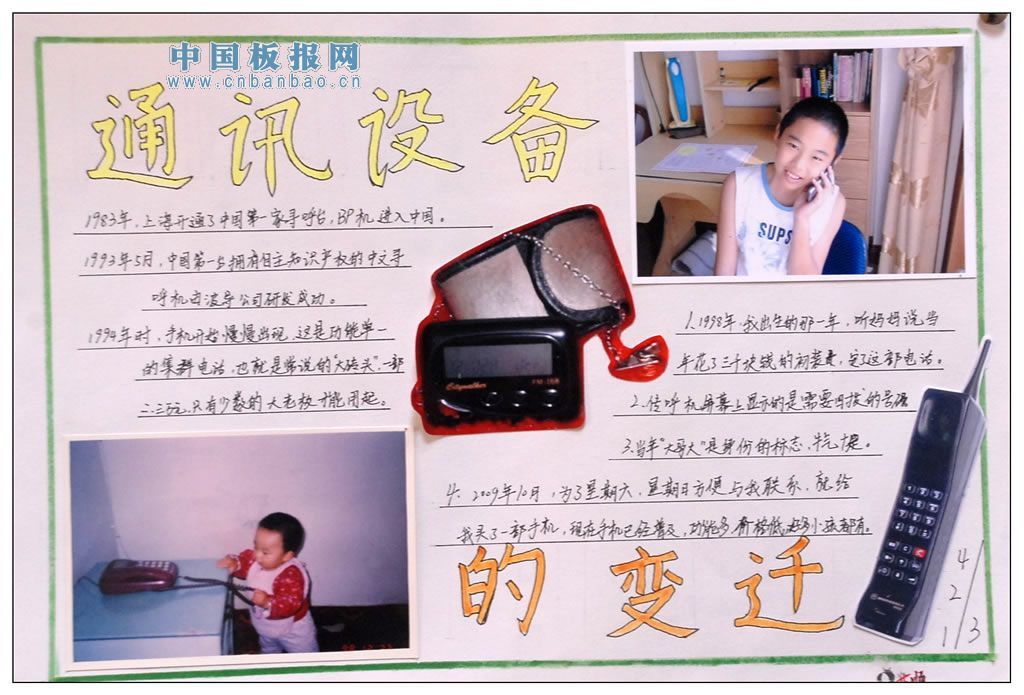 中国板报网
www.cnbanbao.cn
通讯设备
1983年,上海开通了中国第一家寻呼台,BP机进入中国。
1993年5月,中国第一台拥有自主知识产权的中文寻
呼机由波导公司研发成功。
1994年时,手机开始慢慢出现,这是功能单一
的集群电话,也就是常说的"大砖头",一部
二、三万元,只有少数的大老板才能用起。
SUPS
1.1998年,我出生的那一年,听妈妈说当
年花了三千块钱的初装费,定了这部电话。
2.传呼机屏幕上显示的是需要回拨的号码
3.当年"大哥大"是身份的标志,牛气十足。
4.2009年10月,为了星期六、星期日方便与我联系,就给
我买了一部手机,现在手机已经普及,功能多、价格低,好多小孩都有。
的变迁
4/2
1/3